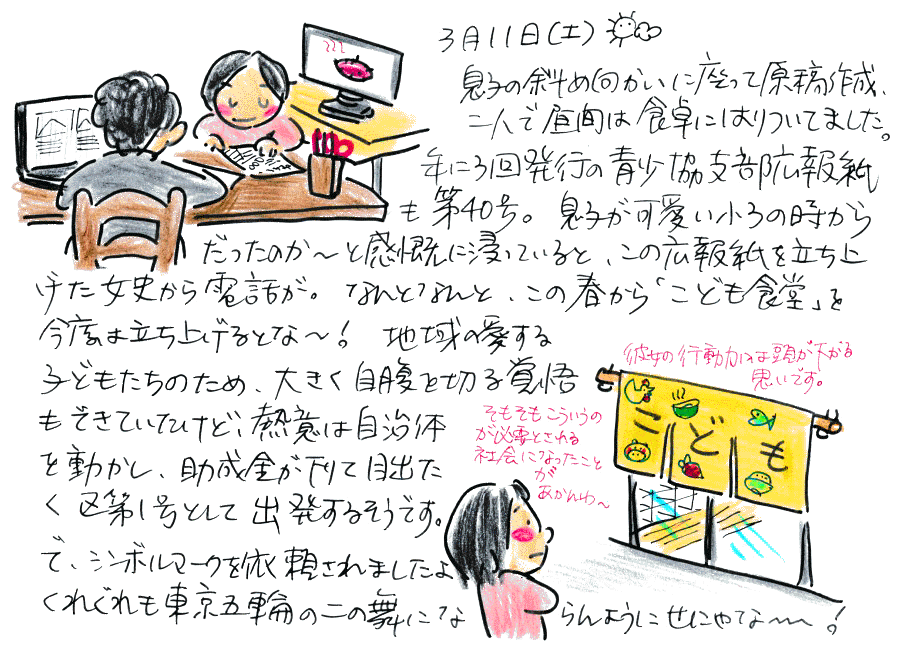 3月11日(土)
息子の斜め向かいに座って原稿作成、
二人で昼間は食卓にはりついてました。
年に3回発行の青少協支部広報紙
も第40号。息子が可愛い小3の時から
だったのか〜と感慨に浸っていると、この広報紙を立ち上
げた女史から電話が。なんとなんと、この春から「こども食堂」を
今度は立ち上げるとな〜！ 地域の愛する
子どもたちのため、大きく自腹を切る覚悟
もできていたけど、熱意は自治体
を動かし、助成金が下りて目出た
く区第1号として出発するそうです。
で、シンボルマークを依頼されましたよ
くれぐれも東京五輪の二の舞にな らんようにせにゃな〜〜！
彼女の行動力には頭が下がる
思いです。
そもそもこういうの
が必要とされる
社会になったこと
が
あかんわ〜
こども